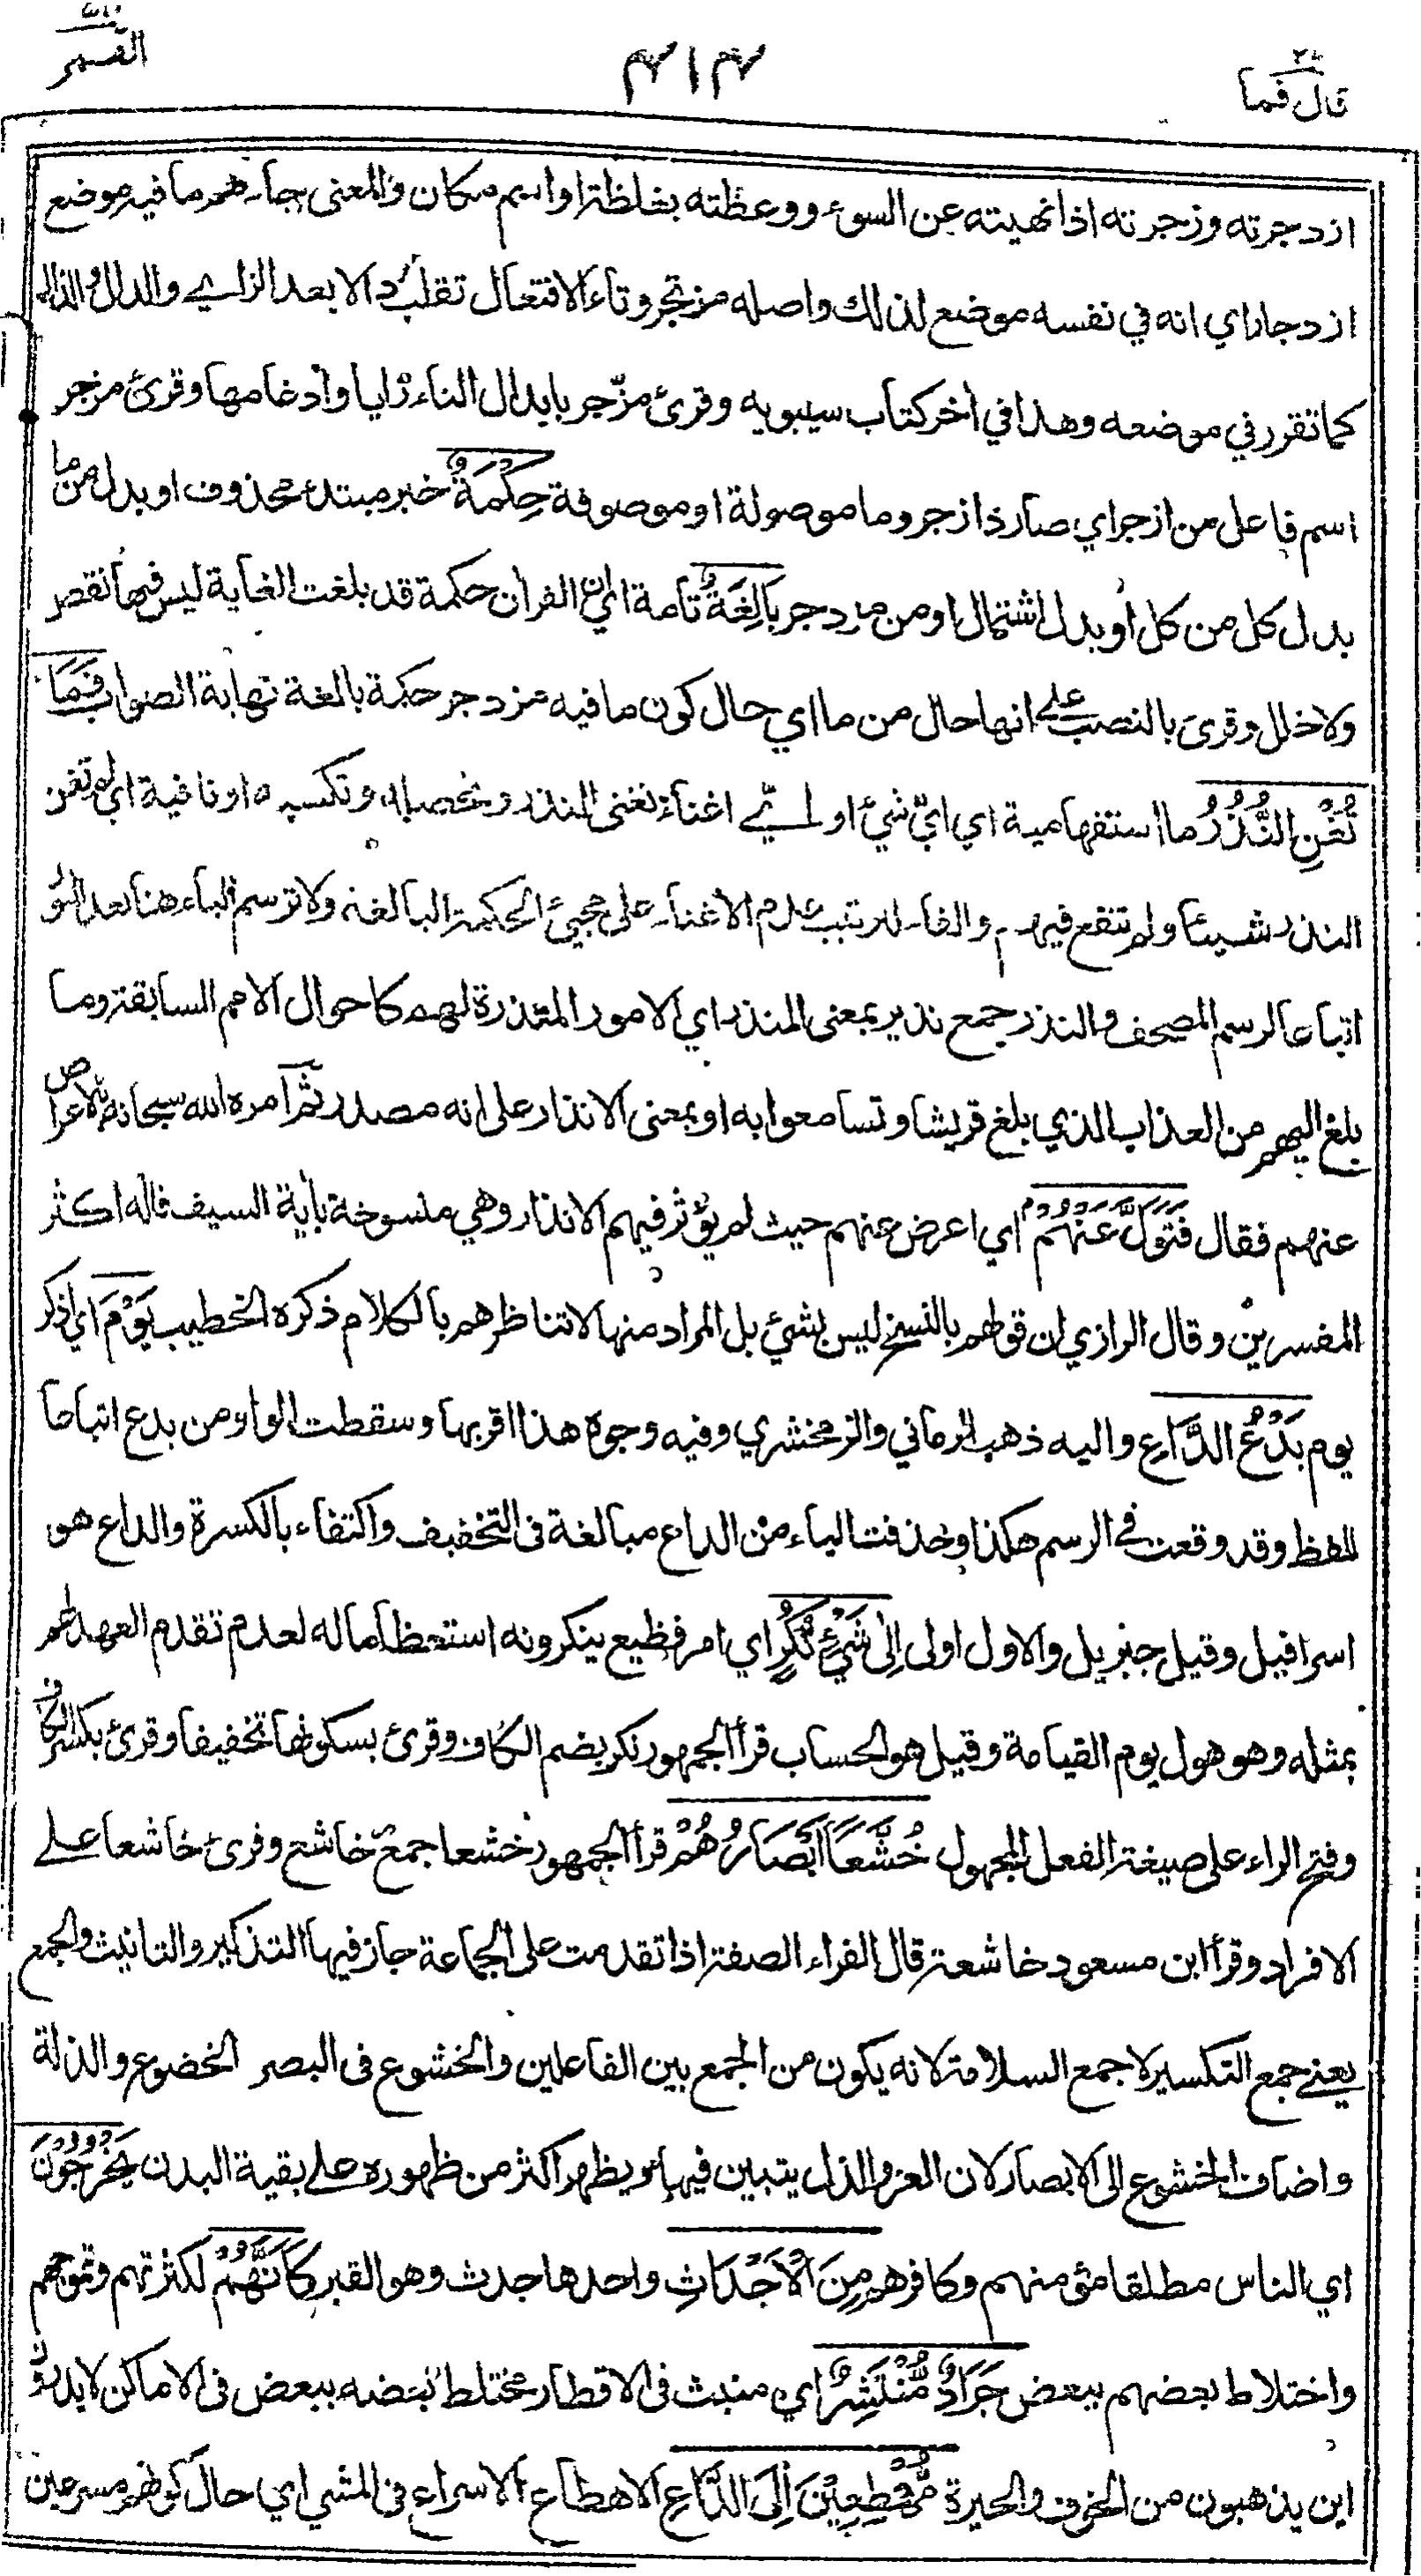 قال فما ٢٧
٣١٣
القمر
ازدجرته وزجرته اذا نهيته عن السوء ووعظته بغلظة او اسم مكان والمعنى جاءهم ما فيه موضع
ازدجار اي انه في نفسه موضع لذلك واصله مزتجر وتاء الافتعال تقلب دالا بعد الزاي والدال والذال
كما تقرر في موضعه وهذا في اخر كتاب سيبويه وقرئ مزّجر بابدال التاء زايا وادغامها وقرئ مزجر
اسم فاعل من ازجر اي صار ذا زجر وما موصولة او موصوفة حِكْمَةٌ خبر مبتدء محذوف او بدل من ما
بدل كل من كل او بدل اشتمال او من مزدجر بَالِغَةٌ تامة اي ان القرأن حكمة قد بلغت الغاية ليس فيها نقص
ولا خلل وقرئ بالنصب على انها حال من ما اي حال كون ما فيه مزدجر حكمة بالغة نهاية الصواب فَمَا
تُغْنِ النُّذُرُ ما استفهامية اي ايّ شيء او لـ ايّ اغناء تغني النذر وتحصله وتكسبه او نافية اي لم تغن
النذر شيئا ولم تنفع فيهم والفاء لترتيب عدم الاغناء على مجيئ الحكمة البالغة ولا ترسم الياء هنا بعد النون
اتباعا لرسم المصحف والنذر جمع نذير بمعنى المنذر اي الامور المنذرة لهم كاحوال الامم السابقة وما
بلغ اليهم من العذاب الذي بلغ قريشا وتسامعوا به او بمعنى الانذار على انه مصدر ثم امره الله سبحانه بالاعراض
عنهم فقال فَتَوَلَّ عَنْهُمْ اي اعرض عنهم حيث لم يؤثر فيهم الانذار وهي منسوخة بأية السيف قاله اكثر
المفسرين وقال الرازي ان قولهم بالنسخ ليس بشيئ بل المراد منها لا تناظرهم بالكلام ذكره الخطيب يَوْمَ اي اذكر
يوم يَدْعُ الدَّاعِ واليه ذهب الرماني والزمخشري وفيه وجوه هذا اقربها وسقطت الواو من يدع اتباعا
للفظ وقد وقعت في الرسم هكذا وحذفت الياء من الداع مبالغة في التخفيف واكتفاء بالكسرة والداع هو
اسرافيل وقيل جبريل والاول اولى اِلٰى شَيْءٍ نُّكُرٍ اي امر فظيع ينكرونه استعظاما له لعدم تقدم العهد لهم
بمثله وهو هول يوم القيامة وقيل هو الحساب قرأ الجمهور نكر بضم الكاف وقرئ بسكونها تخفيفا وقرئ بكسر الكاف
وفتح الراء على صيغة الفعل المجهول خُشَّعًا اَبْصَارُهُمْ قرأ الجمهور خشعا جمع خاشع وقرئ خاشعا على
الافراد وقرأ ابن مسعود خاشعة قال الفراء الصفة اذا تقدمت على الجماعة جاز فيها التذكير والتانيث والجمع
يعني جمع التكسير لا جمع السلامة لانه يكون من الجمع بين الفاعلين والخشوع في البصر الخضوع والذلة
واضاف الخشوع الى الابصار لان العز والذل يتبين فيها ويظهر اكثر من ظهوره على بقية البدن يَخْرُجُوْنَ
اي الناس مطلقا مؤمنهم وكافرهم مِنَ الْاَجْدَاثِ واحدها جدث وهو القبر كَاَنَّهُمْ لكثرتهم وتموجهم
واختلاط بعضهم ببعض جَرَادٌ مُّنْتَشِرٌ اي منبث في الاقطار مختلط بعضه ببعض في الاماكن لا يدرون
اين يذهبون من الخوف والحيرة مُّهْطِعِيْنَ اِلَى الدَّاعِ الاهطاع الاسراع في المشي اي حال كونهم مسرعين